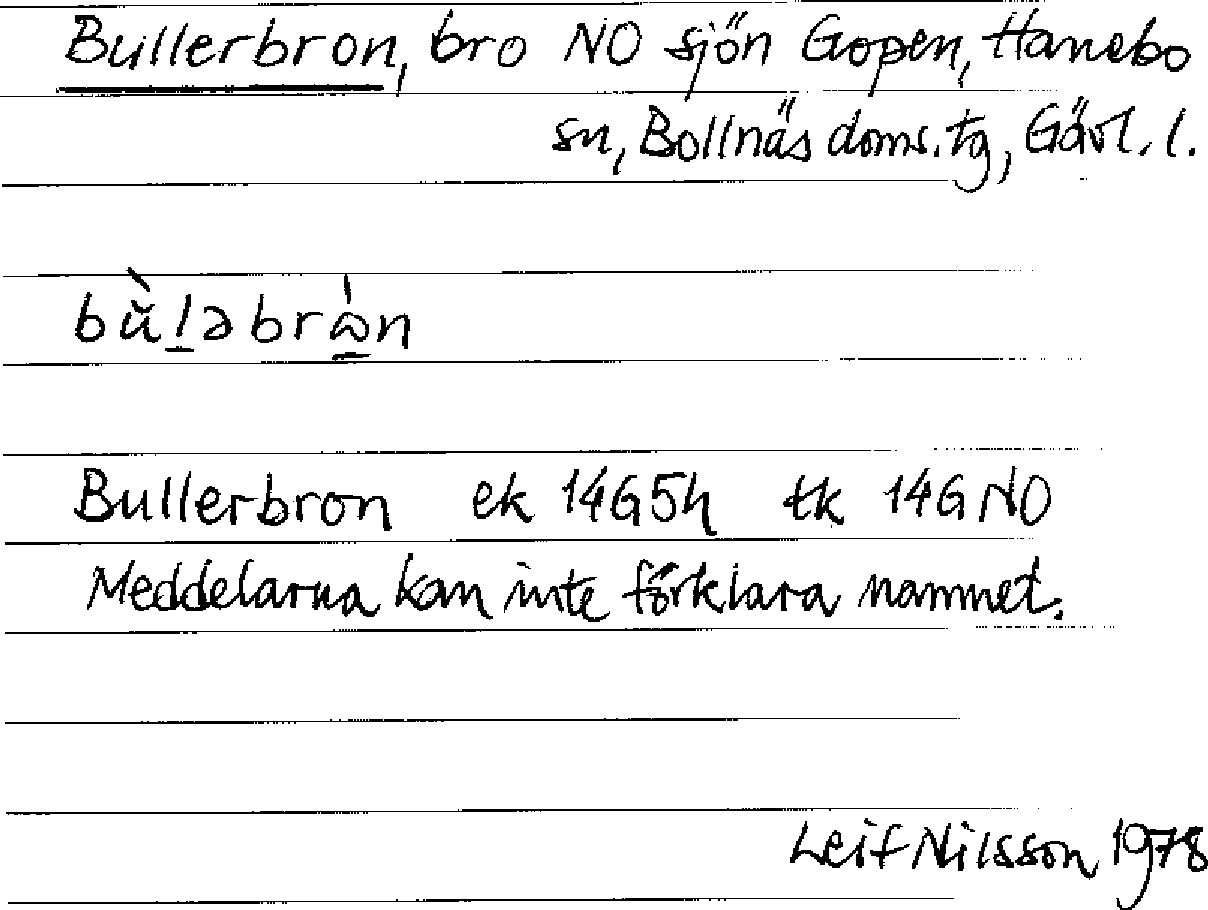 Bullerbron, bro NO sjön Gopen, Hanebo
sn, Bollnäs doms. tg, Gävl. l.
bù̆l̠əbrὼ̠n
Bullerbron ek 14G5h tk 14G NO
Meddelarna kan inte förklara namnet.
Leif Nilsson 1978